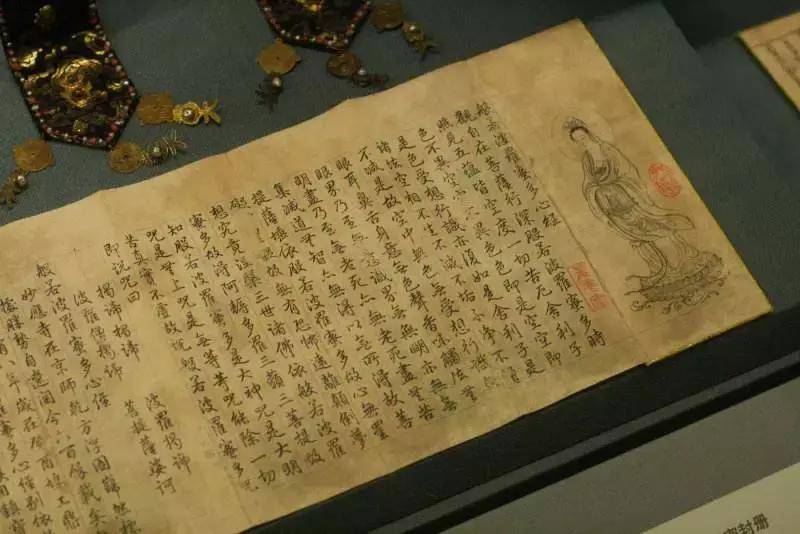 般若波羅蜜多心經
觀自在菩薩行深般若波羅蜜多時
照見五蘊皆空度一切苦厄舍利子
色不異空空不異色色即是空空即
是色受想行識亦復如是舍利子
諸法空相不生不滅不垢不淨不增
不減是故空中無色無受想行識無
眼耳鼻舌身意無色聲香味觸法無
眼界乃至無意識界無無明亦無無
明盡乃至無老死亦無老死盡無苦
集滅道無智亦無得以無所得故菩
提薩埵依般若波羅蜜多故心無罣
礙無罣礙故無有恐怖遠離顛倒夢
想究竟涅槃三世諸佛依般若波羅
蜜多故得阿耨多羅三藐三菩提故
知般若波羅蜜多是大神咒是大明
咒是無上咒是無等等咒能除一切
苦真實不虛故說般若波羅蜜多咒
即說咒曰
揭諦揭諦 波羅揭諦
波羅僧揭諦 菩提薩婆訶
般若波羅蜜多心經
妙應寺在京師乾方浮圖巋然標
封册